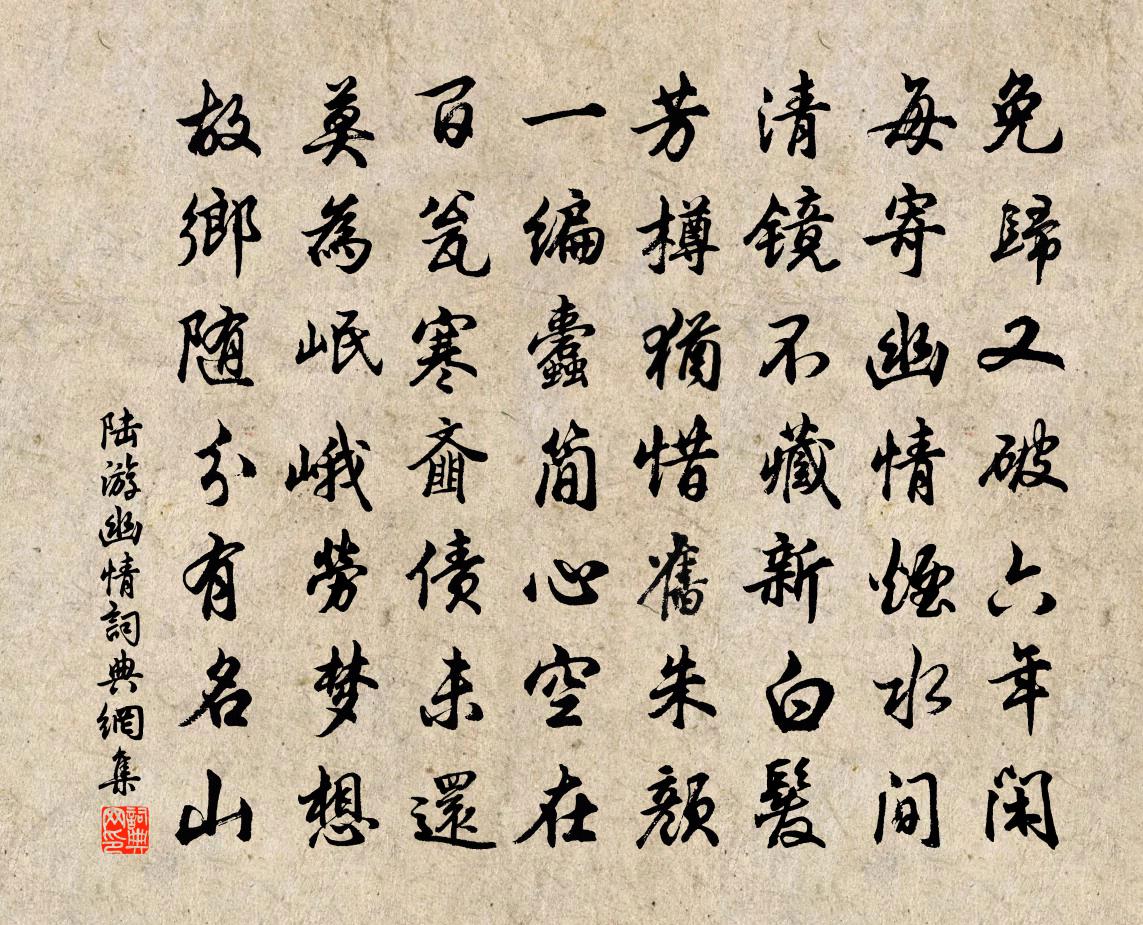 免歸又破六年閑
每寄幽情煙水間
清鏡不藏新白髮
芳樽猶惜舊朱顏
一編蠹简心空在
百瓮寒齑债未還
莫為岷峨勞梦想
故鄉随分有名山
陆游幽情詞典網集
詞典网印